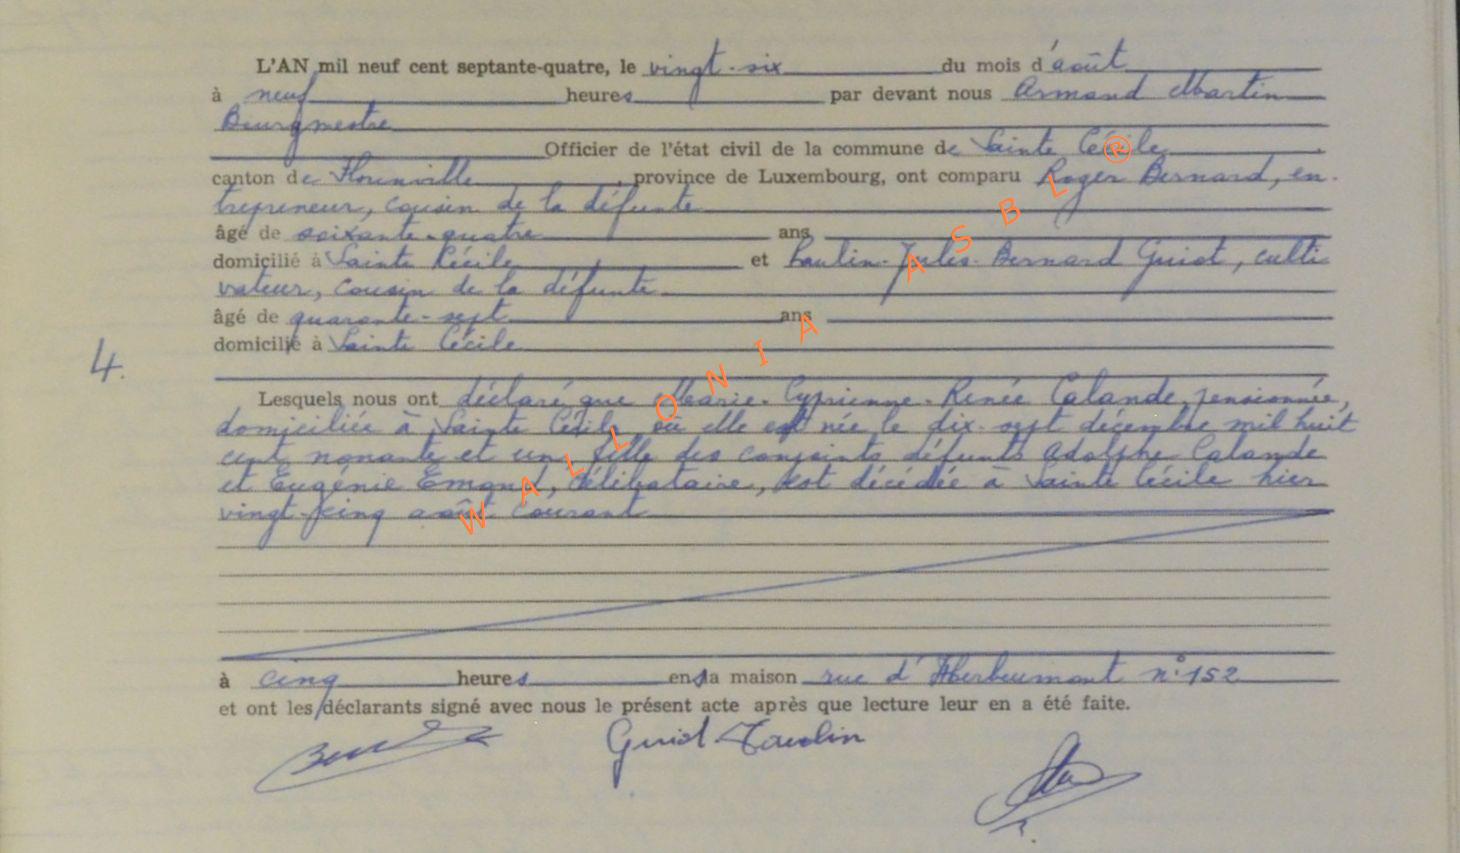 L'AN mil neuf cent septante-quatre, le vingt-six du mois d'août
à neuf heures par devant nous Armand Martin
Bourgmestre
Officier de l'état civil de la commune de Sainte Cécile
canton de Florenville, province de Luxembourg, ont comparu Roger Bernard, en-
trepreneur, cousin de la défunte
âgé de soixante-quatre ans
domicilié à Sainte Cécile et Paulin-Jules-Bernard Guiot, culti
vateur, cousin de la défunte
âgé de quarante-sept ans
domicilié à Sainte Cécile
4.
Lesquels nous ont déclaré que Marie-Cyprienne-Renée Calande, pensionnée,
domiciliée à Sainte Cécile, où elle est née le dix-sept décembre mil huit
cent nonante et un, fille des conjoints défunts Adolphe Calande
et Eugénie Emond, célibataire, est décédée à Sainte Cécile hier
vingt-cinq août courant
à cinq heures en sa maison rue d'Herbeumont n° 152
et ont les déclarants signé avec nous le présent acte après que lecture leur en a été faite.
Guiot Paulin
WALLONIA ASBL ®